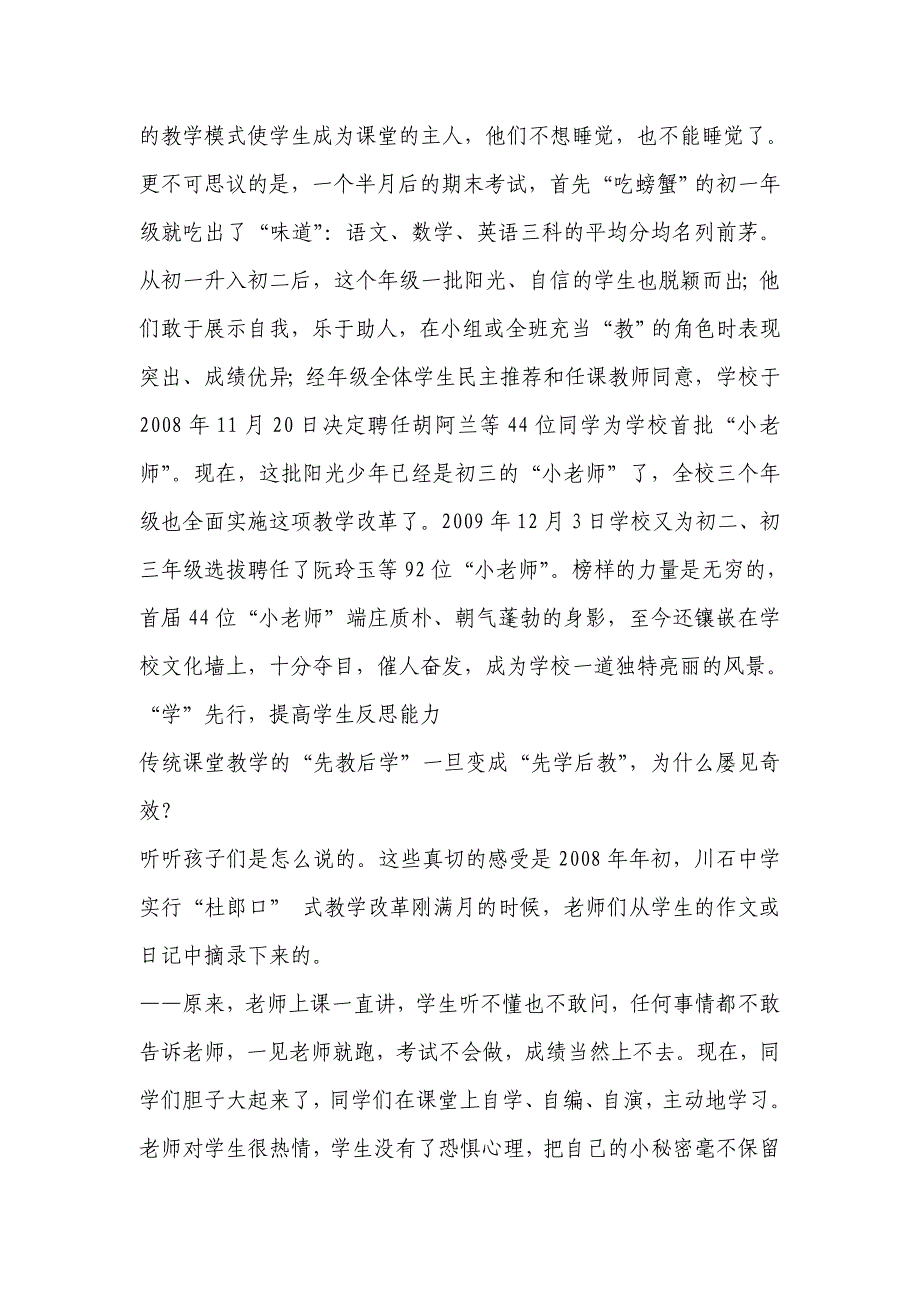 的教学模式使学生成为课堂的主人，他们不想睡觉，也不能睡觉了。
更不可思议的是，一个半月后的期末考试，首先“吃螃蟹”的初一年
级就吃出了“味道”：语文、数学、英语三科的平均分均名列前茅。
从初一升入初二后，这个年级一批阳光、自信的学生也脱颖而出；他
们敢于展示自我，乐于助人，在小组或全班充当“教”的角色时表现
突出、成绩优异；经年级全体学生民主推荐和任课教师同意，学校于
2008 年 11 月 20 日决定聘任胡阿兰等 44 位同学为学校首批“小老
师”。现在，这批阳光少年已经是初三的“小老师”了，全校三个年
级也全面实施这项教学改革了。2009 年 12 月 3 日学校又为初二、初
三年级选拔聘任了阮玲玉等 92 位“小老师”。榜样的力量是无穷的，
首届 44 位“小老师”端庄质朴、朝气蓬勃的身影，至今还镶嵌在学
校文化墙上，十分夺目，催人奋发，成为学校一道独特亮丽的风景。
“学”先行，提高学生反思能力
传统课堂教学的“先教后学”一旦变成“先学后教”，为什么屡见奇
效？
听听孩子们是怎么说的。这些真切的感受是 2008 年年初，川石中学
实行“杜郎口” 式教学改革刚满月的时候，老师们从学生的作文或
日记中摘录下来的。
——原来，老师上课一直讲，学生听不懂也不敢问，任何事情都不敢
告诉老师，一见老师就跑，考试不会做，成绩当然上不去。现在，同
学们胆子大起来了，同学们在课堂上自学、自编、自演，主动地学习。
老师对学生很热情，学生没有了恐惧心理，把自己的小秘密毫不保留